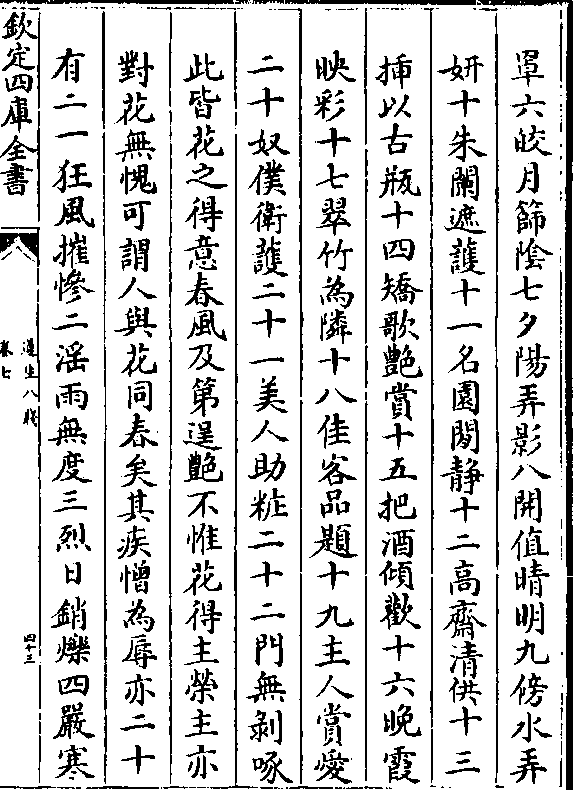 罩六皎月篩陰七夕陽弄影八開值晴明九傍水弄
妍十朱闌遮護十一名園閒靜十二高齋清供十三
揷以古瓶十四矯歌艶賞十五把酒傾歡十六晚霞
映彩十七翠竹為隣十八佳客品題十九主人賞愛
二十奴僕衛護二十一美人助粧二十二門無剥啄
此皆花之得意春風及第逞艶不惟花得主榮主亦
對花無愧可謂人與花同春矣其疾憎為辱亦二十
有二一狂風摧慘二滛雨無度三烈日銷爍四嚴寒
欽定四庫全書
遵生八牋
卷七
四十三